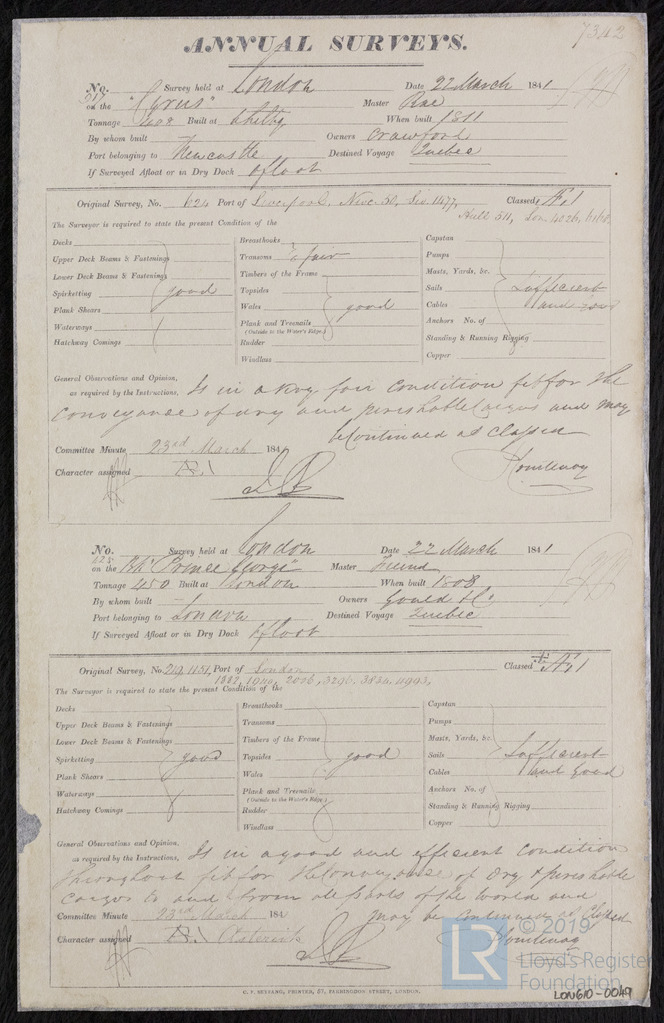 7342
ANNUAL SURVEYS.
No. Survey held at London Date 22 March 1841
on the "Cyrus" Master Rae
Tonnage Built at Whitby When built 1811
By whom built Owners Crawford
Port belonging to Newcastle Destined Voyage Quebec
If Surveyed Afloat or in Dry Dock Afloat
Original Survey, No. 624 Port of Liverpool, Newc. 30, 11477, Classed Æ1
Hull 511, Lon. 4026,
The Surveyor is required to state the present Condition of the
Decks Breasthooks Capstan
Upper Deck Beams & Fastenings Transoms fair Pumps
Lower Deck Beams & Fastenings Timbers of the Frame Masts, Yards, &c.
Spirketting good Topsides Sails Sufficient
Plank Shears Wales good Cables and
Waterways Plank and Treenails Anchors No. of
(Outside to the Water's Edge.)
Hatchway Comings Rudder Standing & Running Rigging
Windlass Copper
General Observations and Opinion, Is in a very fair condition fit for the
as required by the Instructions,
conveyance of dry and perishable Cargos and may
be continued as Classed
Committee Minute 23rd March 184
Character assigned Æ1
No. Survey held at London Date 22 March 1841
on the "Prince George" Master Friend
Tonnage 450 Built at London When built 1808
By whom built Owners Gould & Co
Port belonging to London Destined Voyage Quebec
If Surveyed Afloat or in Dry Dock Afloat
Original Survey, No. 219, 1151, Port of London Classed Æ1
1882, 1940, 2026, 3296, 3834, 4993,
The Surveyor is required to state the present Condition of the
Decks Breasthooks Capstan
Upper Deck Beams & Fastenings Transoms Pumps
Lower Deck Beams & Fastenings Timbers of the Frame Masts, Yards, &c.
Spirketting good Topsides good Sails Sufficient
Plank Shears Wales Cables and Good
Waterways Plank and Treenails Anchors No. of
(Outside to the Water's Edge.)
Hatchway Comings Rudder Standing & Running Rigging
Windlass Copper
General Observations and Opinion,
as required by the Instructions, Is in a good and efficient condition
throughout fit for the conveyance of dry & perishable
cargos to and from all parts of the world and
Committee Minute 23rd March 184 may be continued as Classed
Character assigned Æ1 Asterisk
© 2019
LR Lloyd's Register
Foundation
C. F. SEYFANG, PRINTER, 57, FARRINGDON STREET, LONDON.
LON610-0049